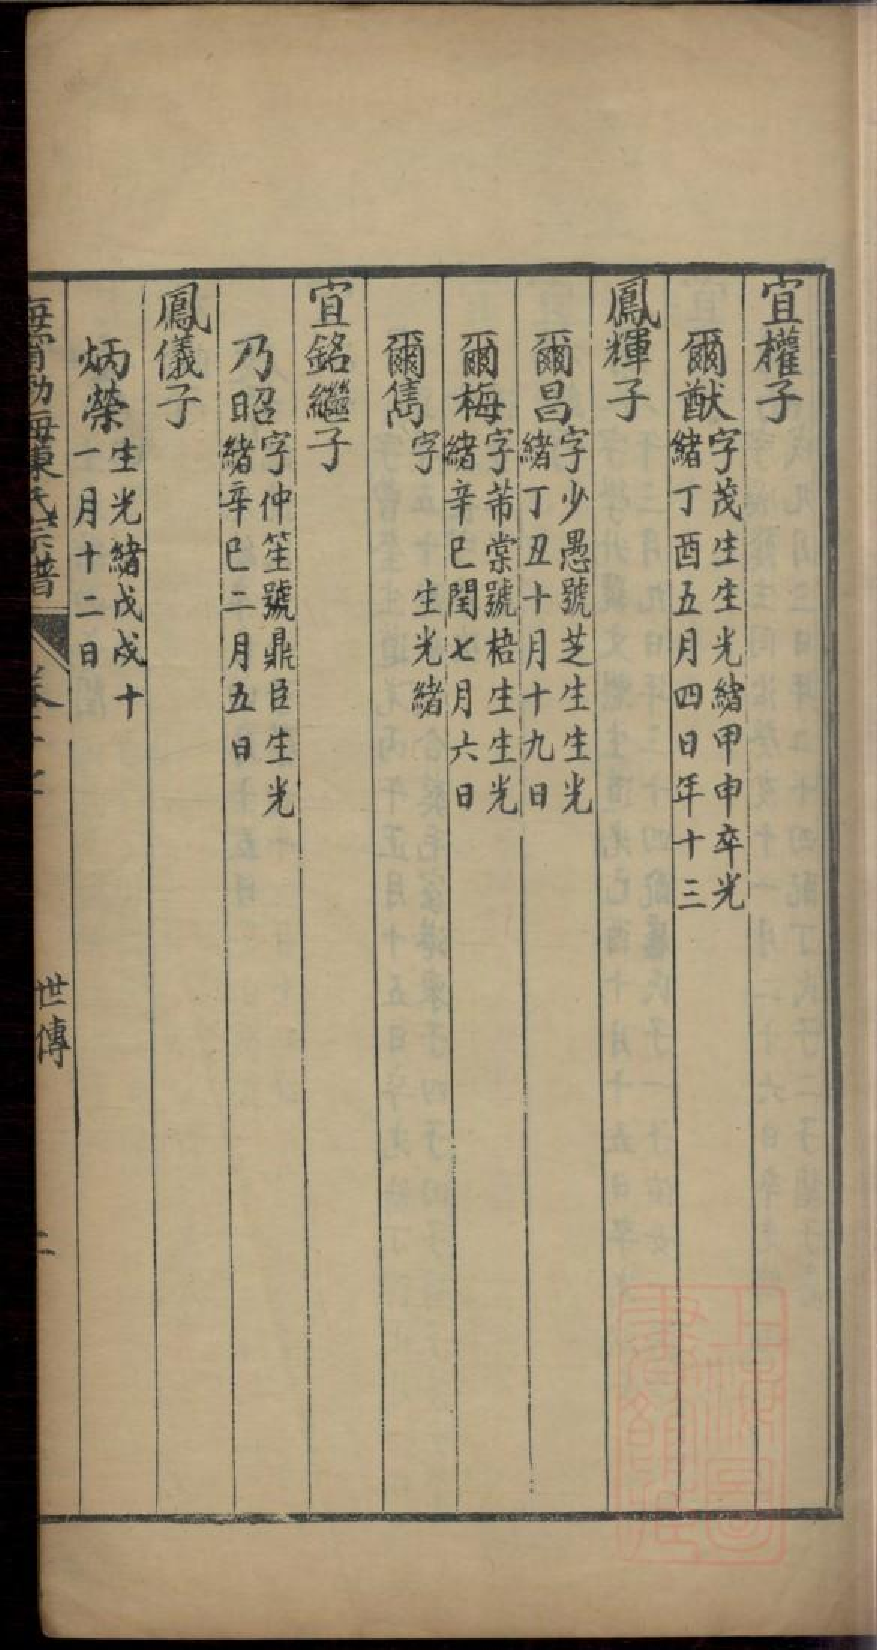 宜權子
爾猷 字茂生生光緒甲申卒光
緒丁酉五月四日年十三
鳳輝子
爾昌 字少愚號芝生生光
緒丁丑十月十九日
爾梅 字芾棠號梧生生光
緒辛巳閏七月六日
爾雋 字 生光緒
宜銘繼子
乃昭 字仲笙號鼎臣生光
緒辛巳二月五日
鳳儀子
炳榮 生光緒戊戌十
一月十二日
海甯渤海陳氏宗譜
世傳
二